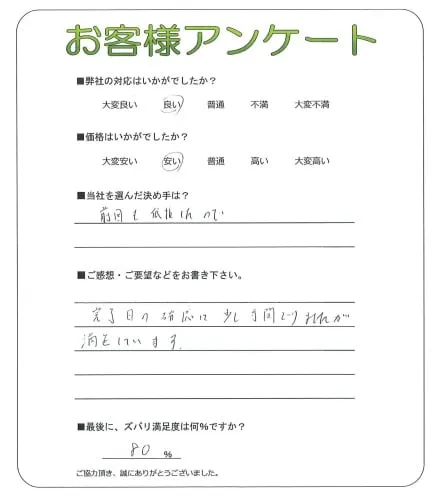 お客様アンケート
■弊社の対応はいかがでしたか？
大変良い 良い 普通 不満 大変不満
■価格はいかがでしたか？
大変安い 安い 普通 高い 大変高い
■当社を選んだ決め手は？
前回も依頼したので
■ご感想・ご要望などをお書き下さい。
完了日の確認に少し手間どりましたが
満足しています。
■最後に、ズバリ満足度は何％ですか？
80 ％
ご協力頂き、誠にありがとうございました。